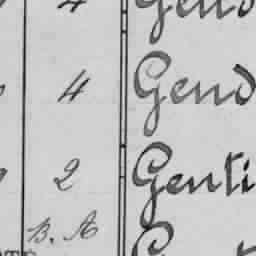 4 Gend
4 Gend
2 Genti
B. A